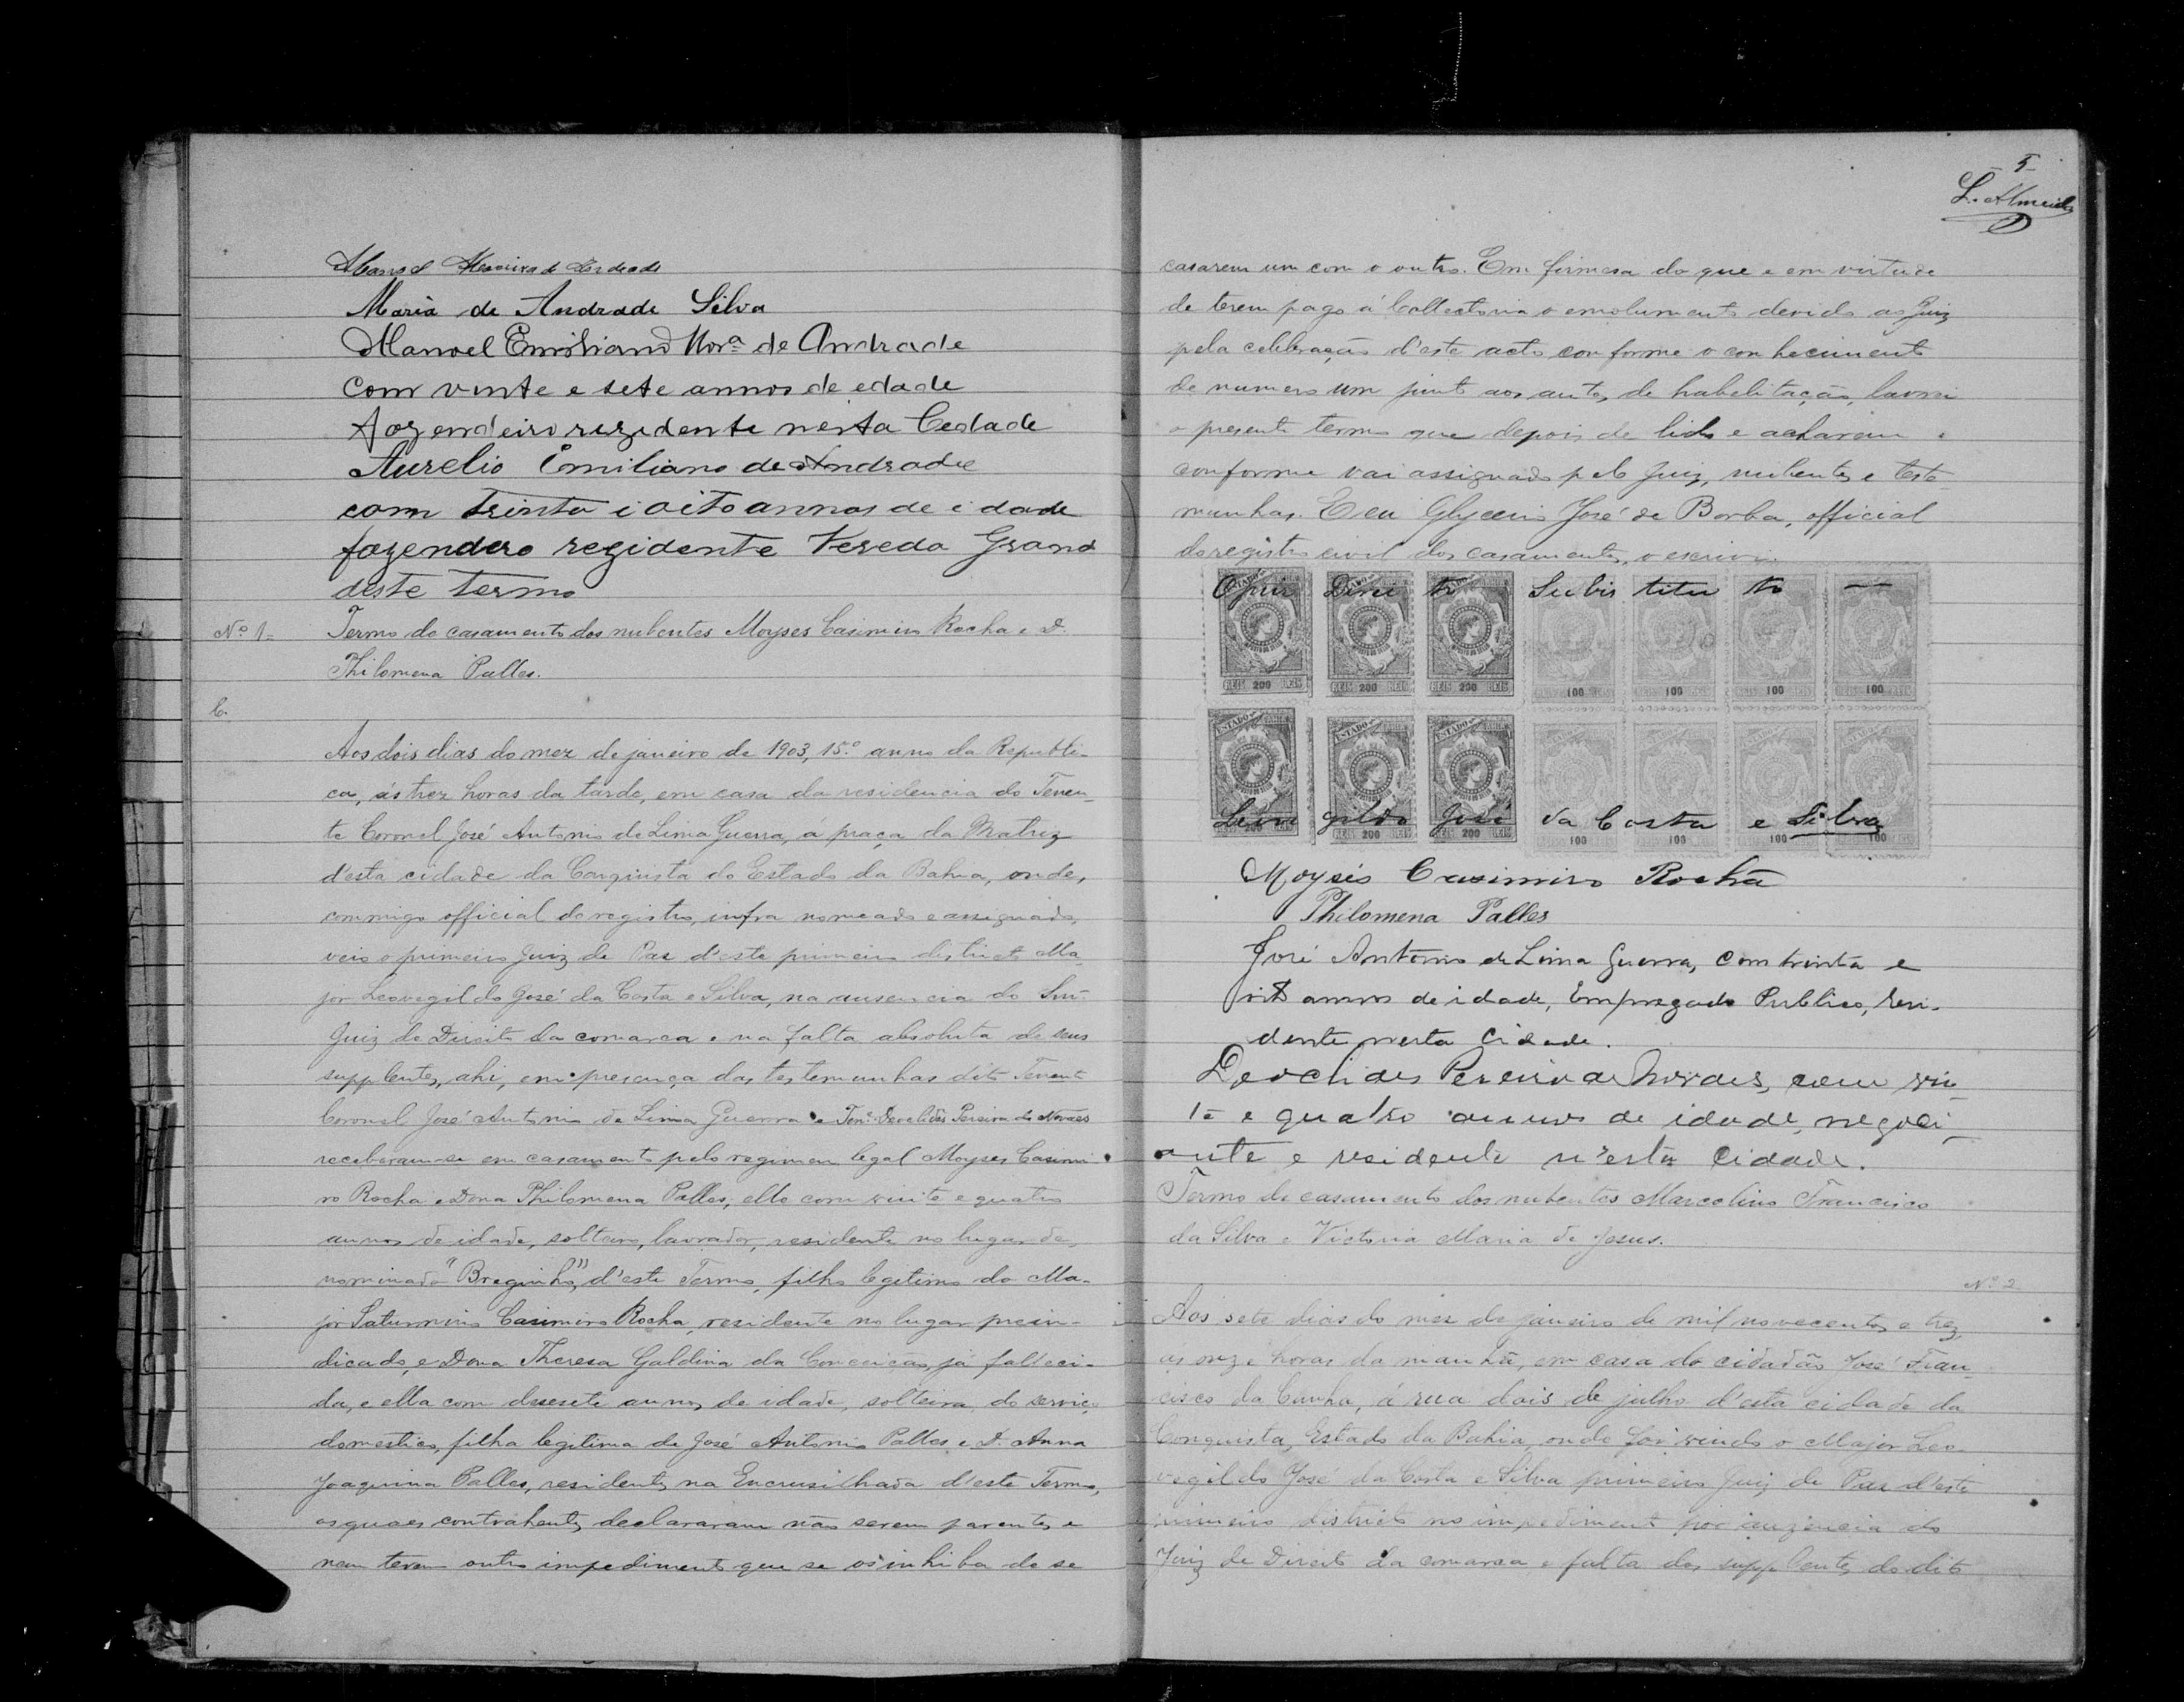 Manoel Moreira de Andrade
Maria de Andrade Silva
Manoel Emiliano Morª de Andrade
com vinte e sete annos de edade
Fazendeiro rezidente nesta Cedade
Aurelio Emiliano de Andrade
com trinta i oito annos de idade
fazendero rezidente Vereda Grand
deste termo
Nº 1=
Termo de casamento dos nubentes Moyses Casimiro Rocha e D.
Philomena Palles.
C.
Aos dois dias do mez de janeiro de 1903, 15º anno da Republi-
ca, ás trez horas da tarde, em casa da residencia do Tenen-
te Coronel José Antonio de Lima Guerra, á praça da Matriz
d'esta cidade da Conquista do Estado da Bahia, onde,
commigo official do registro, infra nomeado e assignado,
veio o primeiro Juiz de Paz d'este primeiro districto Ma-
jor Leovegildo José da Costa e Silva, na ausencia do
Juiz de Direito da comarca e na falta absoluta de seus
supplentes, ahi, em presença das testemunhas dito Tenente
Coronel José Antonio de Lima Guerra e Tenº Deoclides Pereira de Novaes
receberam-se em casamento pelo regimen legal Moyses Casimi-
ro Rocha e Dona Philomena Palles, elle com vinte e quatro
annos de idade, solteiro, lavrador, residente no lugar de-
nominado "Breginho", d'este Termo, filho legitimo do Ma-
jor Saturnino Casimiro Rocha, residente no lugar prein-
dicado, e Dona Theresa Galdina da Conceição, já falleci-
da, e ella com desesete annos de idade, solteira, do serviço
domestico, filha legitima de José Antonio Palles e D. Anna
Joaquina Palles, residentes na Encrusilhada d'este Termo,
os quaes contrahentes declararam não serem parentes e
nem terem outro impedimento que se os inhiba de se
5
L. Almeida
casarem um com o outro. Em firmesa do que e em virtude
de terem pago á Collectoria o emolumento devido ao Juiz
pela celebração d'este acto conforme o conhecimento
de numero um junto aos autos de habelitação, lavrei
o presente termo que depois de lido e acharem
conforme vai assignado pelo Juiz, nubentes e teste-
munhas. E eu Glycerio José de Borba, official
do registro civil dos casamentos, o escrivi.
O Juiz Direito Subistituto —
REIS 200 REIS REIS 200 REIS REIS 200 REIS 100 100 100 100
ESTADO DA BAHIA
Leovigildo José da Costa e Silva
200 200 200 100 100 100 100
Moysés Casimiro Rocha
Philomena Palles
José Antonio de Lima Guerra, com trinta e
oito annos de idade, Empregado Publico, resi-
dente nesta Cidade.
Deoclides Pereira de Novaes, com vin-
te e quatro annos de idade, negoci-
ante e residente n'esta Cidade.
Termo de casamento dos nubentes Marcelino Francisco
da Silva e Victoria Maria de Jesus.
Nº 2
Aos sete dias do mez de janeiro de mil novecentos e trez
as onze horas da manhã, em casa do cidadão José Fran-
cisco da Cunha, á rua dois de julho d'esta cidade da
Conquista, Estado da Bahia, onde foi vindo o Major Leo-
vegildo José da Costa e Silva primeiro Juiz de Paz d'este
primeiro districto no impedimento por auzencia do
Juiz de Direito da comarca e falta dos supplentes do dito